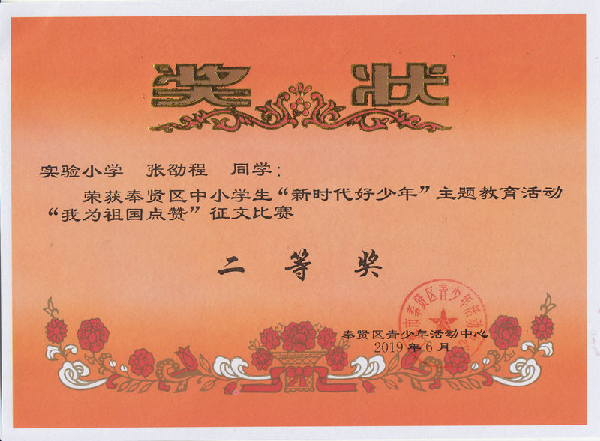 奖 状
实验小学 张劭程 同学:
荣获奉贤区中小学生“新时代好少年”主题教育活动
“我为祖国点赞”征文比赛
二 等 奖
市奉贤区青少年活动
奉贤区青少年活动中心
2019年6月